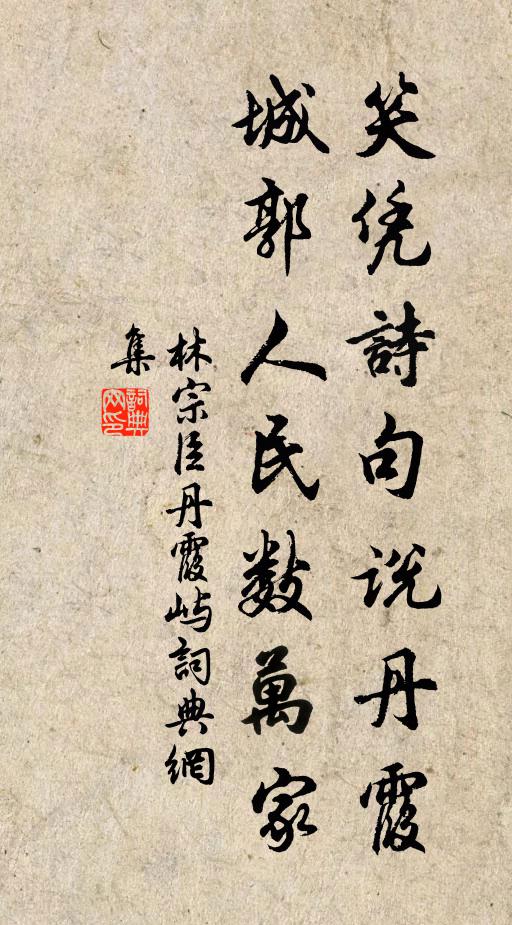 笑凭詩句説丹霞
城郭人民数萬家
林宗臣丹霞屿詞典網
集
詞典網印